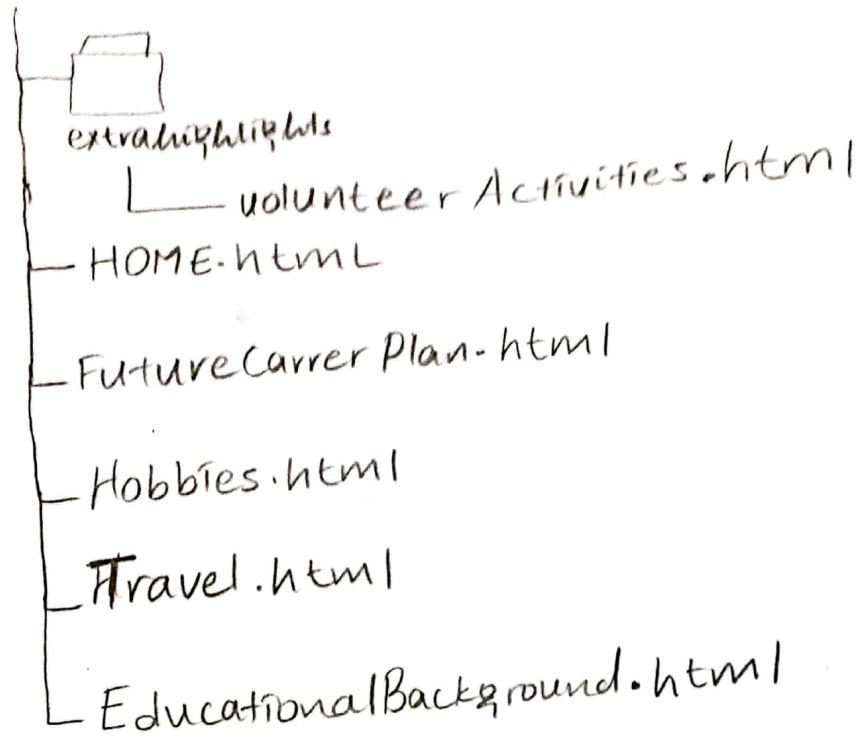 extrahighlights
volunteer Activities.html
HOME.htmL
FutureCarrer Plan.html
Hobbies.html
Travel.html
EducationalBackground.html